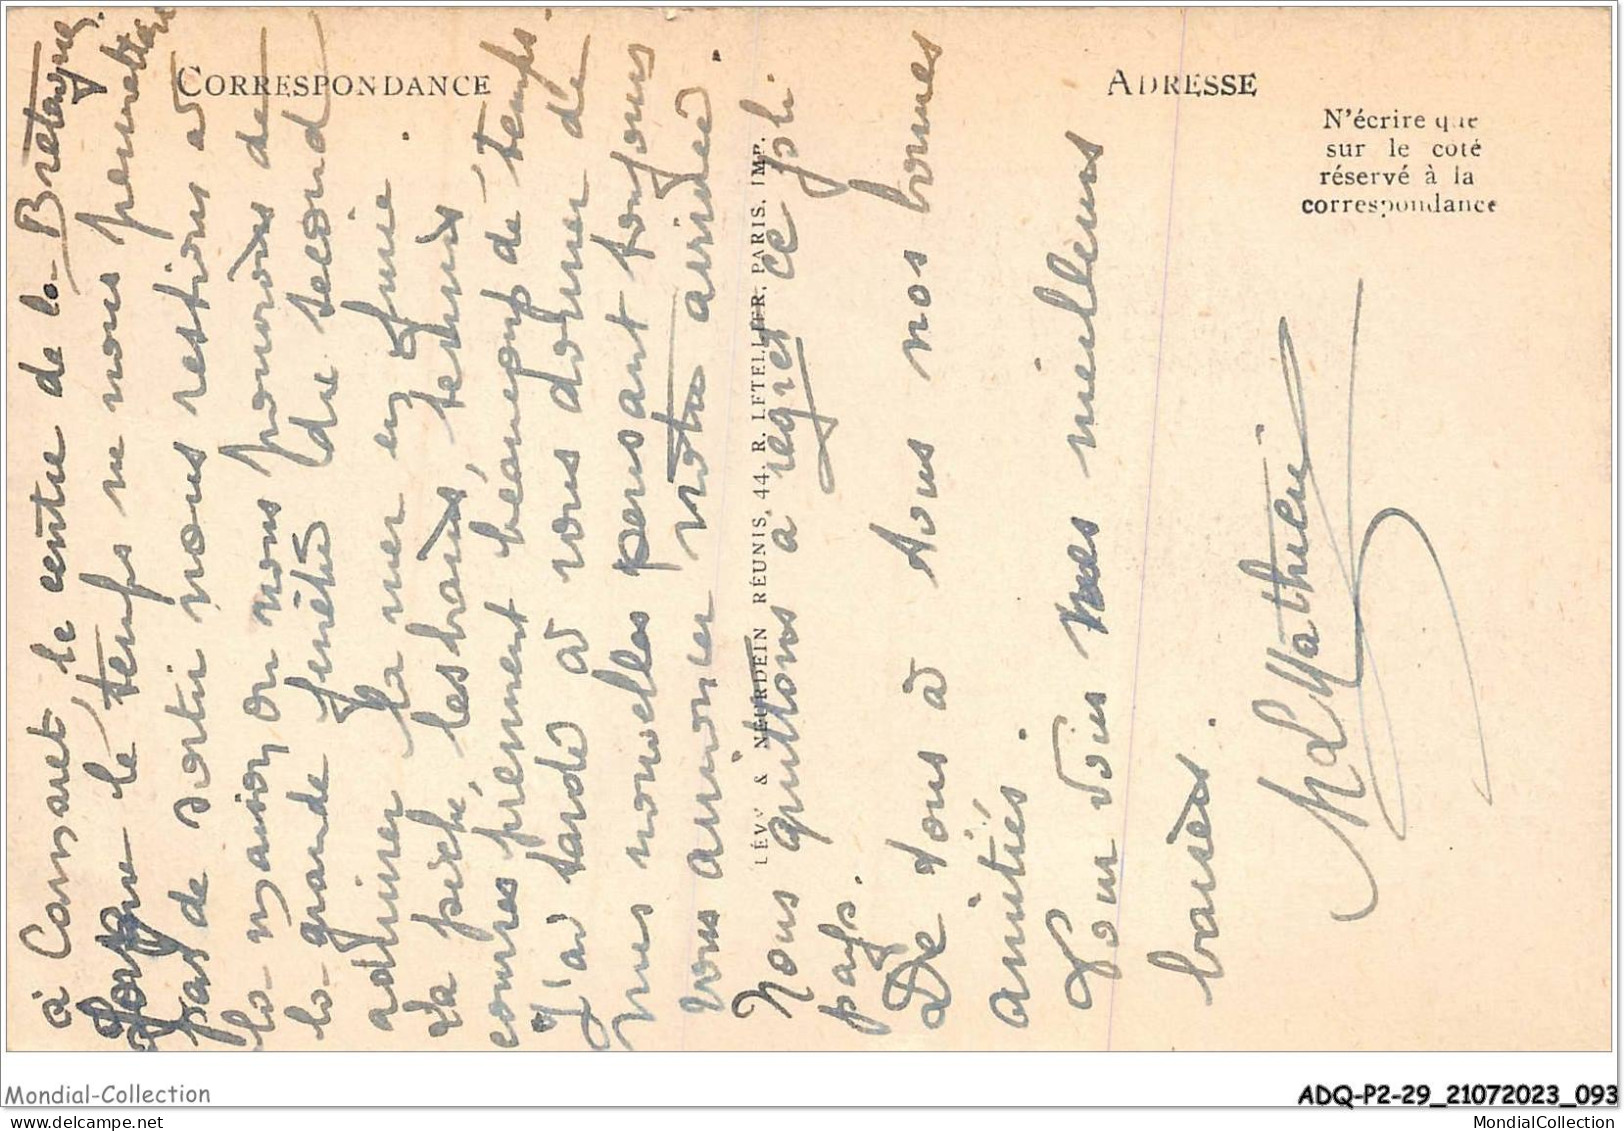 CORRESPONDANCE
ADRESSE
N'écrire que
sur le coté
réservé à la
correspondance
à Comsaret, le centre de la Bretagne.
Lorsque le temps ne nous permettait
pas de sortir nous restions à
la maison où nous pouvions de
la grande fenêtre (du second)
admirer la mer en furie
La pêche, les bains, tennis
courses prennent beaucoup de temps.
J'ai tardé à vous donner de
mes nouvelles pensant toujours
vous annoncer notre arrivée
Nous quittons à regret ce joli
pays.
De tous à tous nos bonnes
amitiés.
Pour vous mes meilleurs
baisers.
Mathieu
LÉVY & NEURDEIN RÉUNIS, 44, R. LETELLIER, PARIS, IMP.
Mondial-Collection
ADQ-P2-29_21072023_093
MondialCollection.com
MondialCollection.com